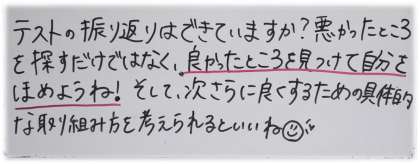 テストの振り返りはできていますか？悪かったところ
を探すだけではなく、良かったところを見つけて自分を
ほめようね！そして、次さらに良くするための具体的
な取り組み方を考えられるといいね